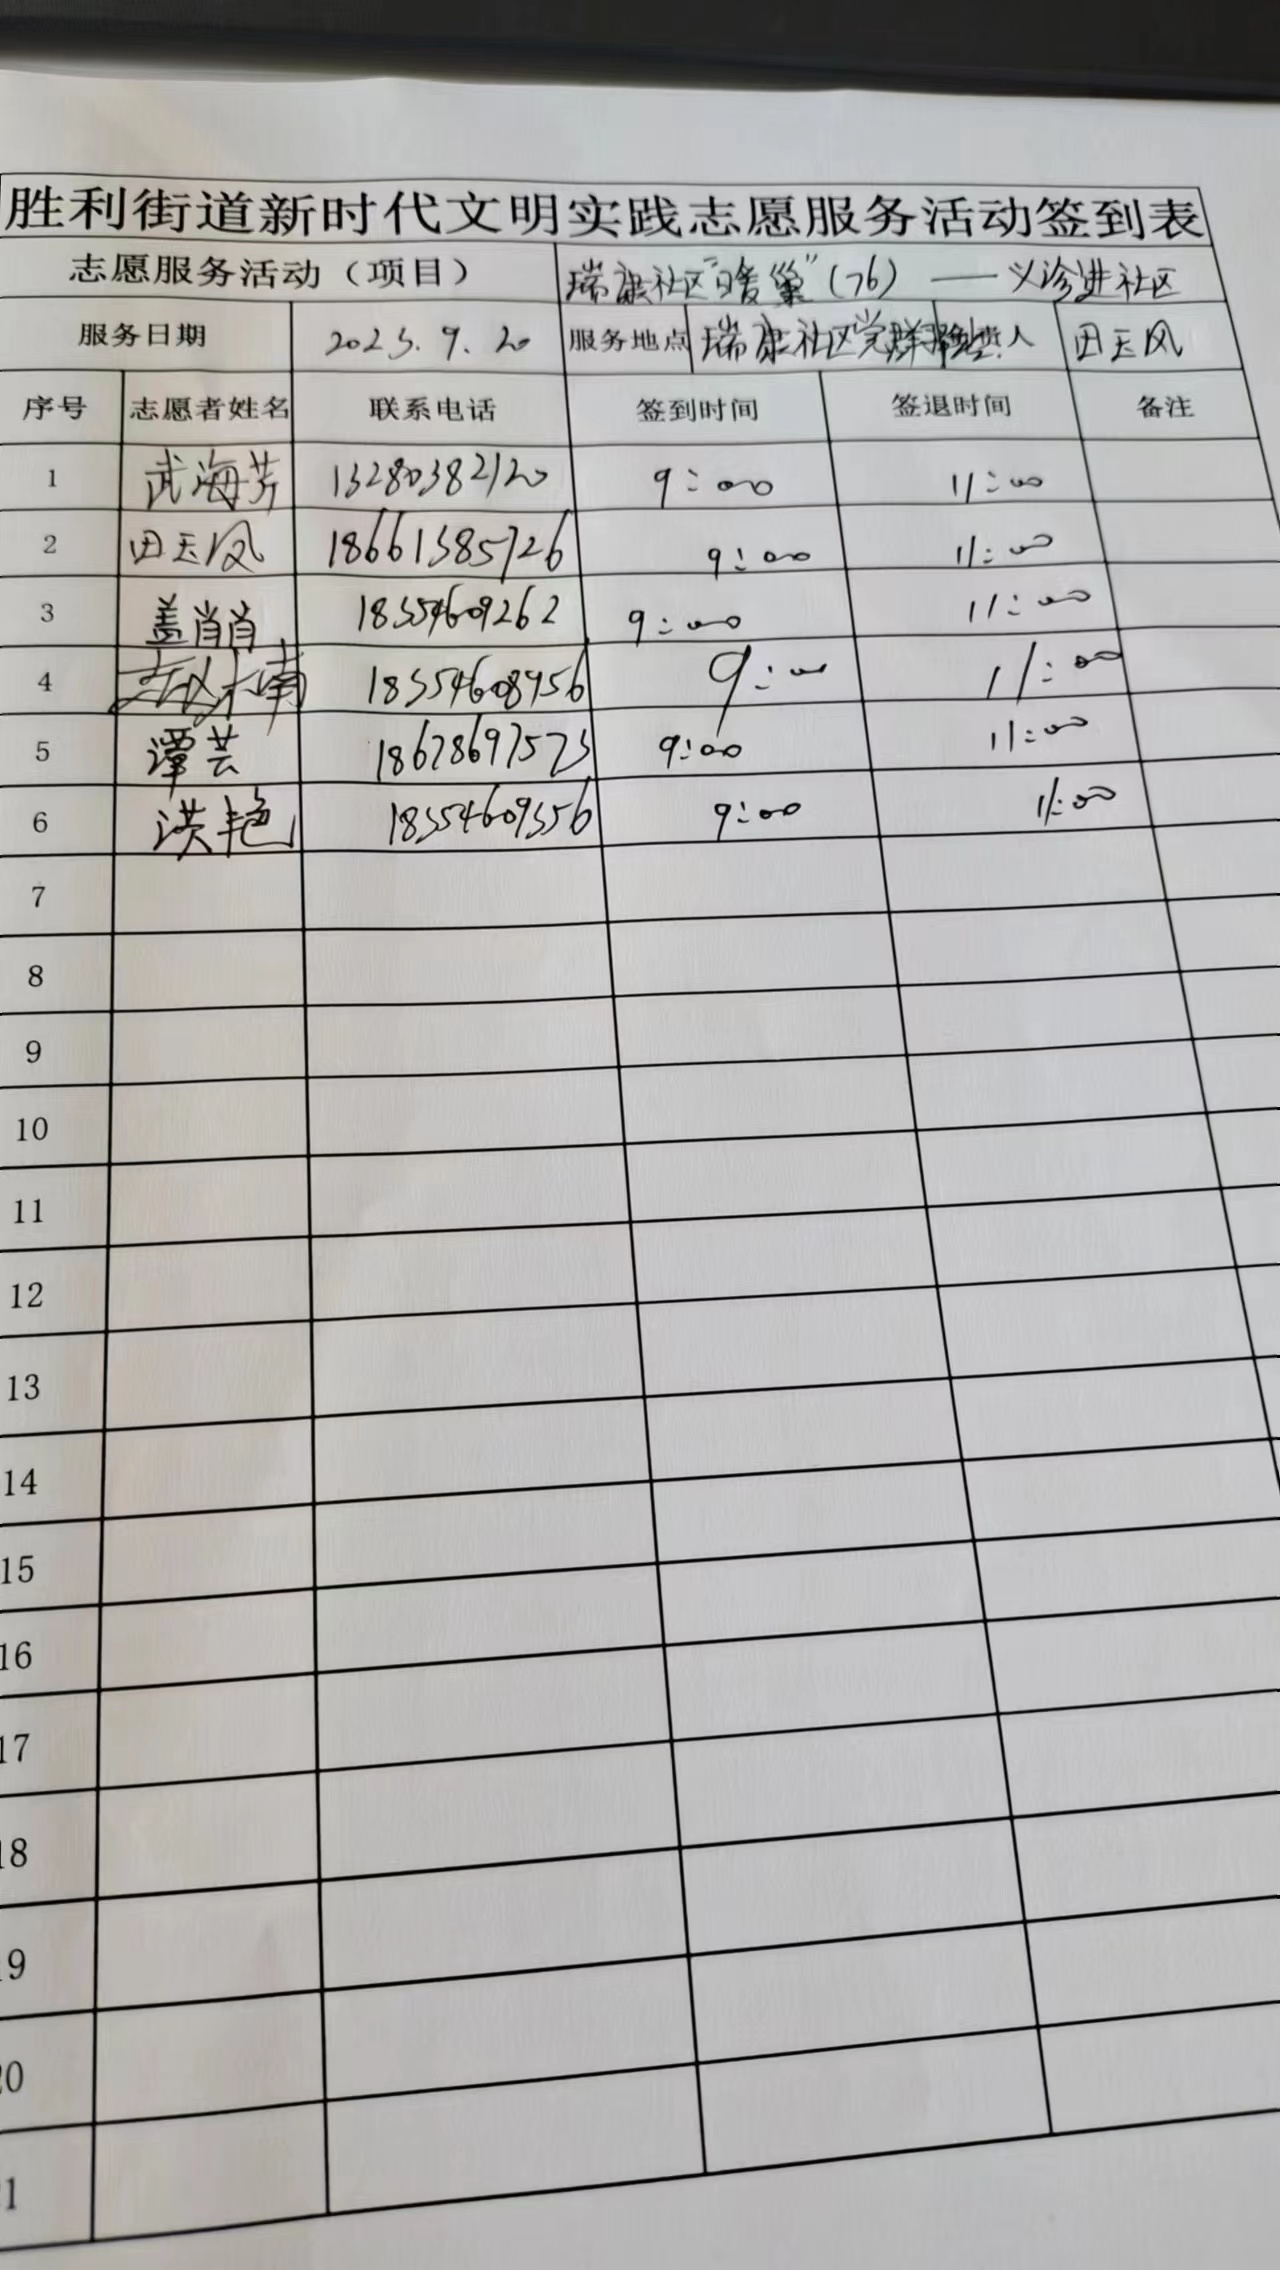 胜利街道新时代文明实践志愿服务活动签到表
志愿服务活动（项目） 瑞康社区"暖巢"(76) —— 义诊进社区
服务日期 2023.9.20 服务地点 瑞康社区党群 责人 田玉凤
序号 志愿者姓名 联系电话 签到时间 签退时间 备注
1 武海芳 13280382120 9:00 11:00
2 田玉凤 18661385726 9:00 11:00
3 盖肖肖 18554609262 9:00 11:00
4 18554608956 9:00 11:00
5 谭芸 18678697573 9:00 11:00
6 洪艳 18554609556 9:00 11:00
7
8
9
10
11
12
13
14
15
16
17
18
19
20
21